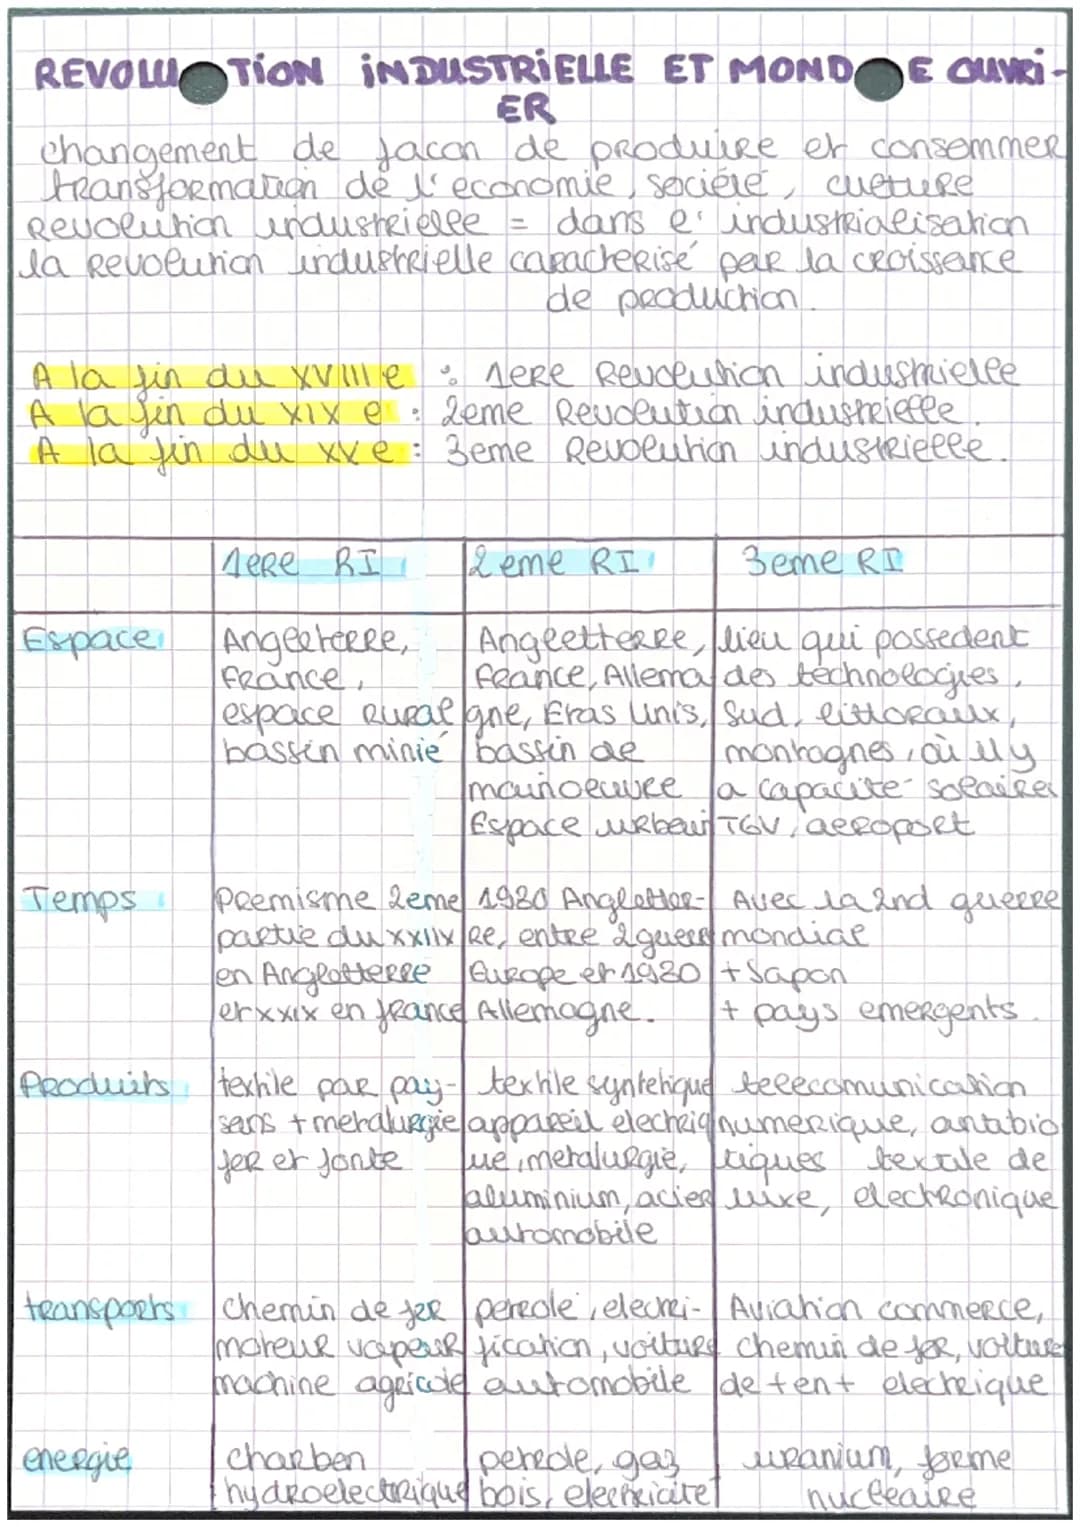 REVOLUTION INDUSTRIELLE ET MONDE OUVRI-
ER
changement de facon de produire et consommer
transformation de l'economie, sociéte, culture
Revolution industrielle = dans l'industrialisation
la Revolution industrielle caracterisé par la croissance
de production.
A la fin du XVIII e : 1ere Revolution industrielle
A la fin du XIX e : 2eme Revolution industrielle.
A la fin du XX e : 3eme Revolution industrielle.
1ere RI 2eme RI 3eme RI
Espace Angleterre, Angletterre, lieu qui possedent
France, France, Allema des technologies,
espace rural gne, Etas Unis, Sud, littoraux,
bassin minié bassin de montagnes, où il y
mainoeuvre a capacite solaire
Espace urbain TGV, aeroport
Temps Premisme 2eme 1920 Angletter- Avec la 2nd guerre
partie du xxiix re, entre 2 guerr mondial
en Angletterre Europe et 1920 + Japon
et xxix en france Allemagne. + pays emergents.
Produits textile par pay- textile syntetique telecomunication
sans + metalurgie appareil electriq numerique, antabio
fer et fonte ue, metalurgie, tiques textile de
aluminium, acier luxe, electronique
automobile
transports chemin de fer petrole, electri- Aviation commerce,
moteur vapeur fication, voiture chemin de fer, voiture
machine agricole automobile de tent electrique
energie charben petrole, gaz uranium, forme
hydroelectrique bois, electricite nucleaire